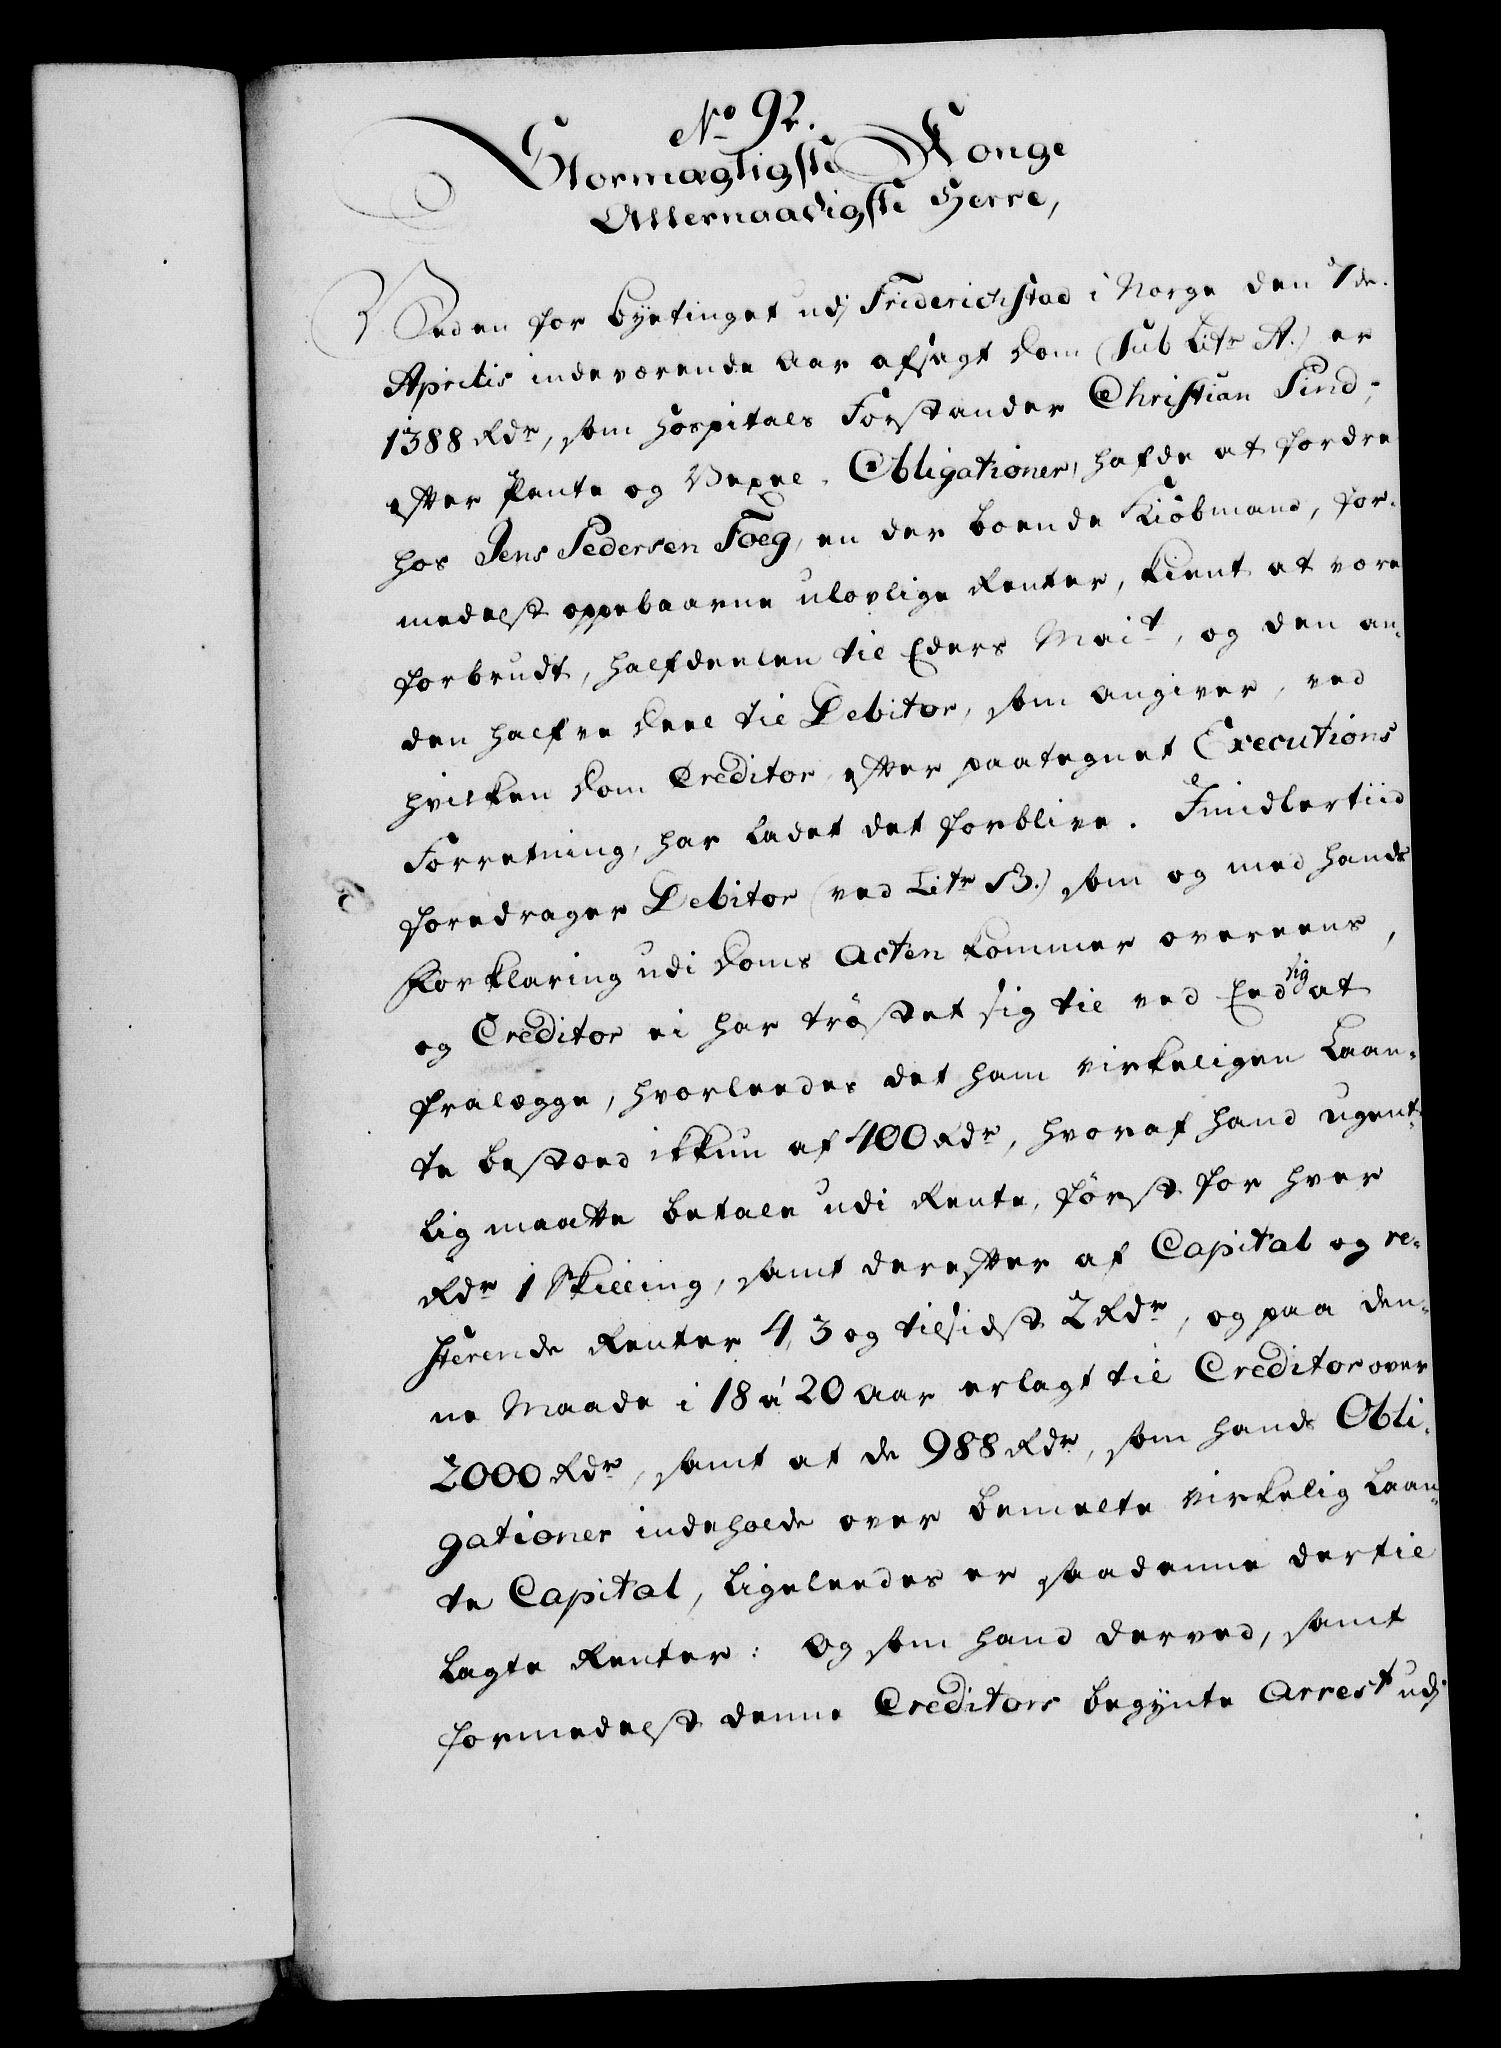 No 92.
Stormægtigste Konge
Allernaadigste Herre,
Veden for Byetinget udj Friderichstad i Norge den 7de
Aprilis indeværende Aar afsagt Dom (Sub Litr A.) er
1388 Rdr, som Hospitals Forstander Christian Sind,
efter Pante og Vexel-Obligationer, hafde at fordre
hos Jens Pedersen Foeg, en der boende Kiöbmand, for-
medelst oppebaarne ulovlige Renter, kient at være
forbrudt, halfdeelen til Eders Mait, og den an-
den halfve Deel til Debitor, som angiver, ved
hvilken Dom Creditor, efter paategnet Executions
Forretning, har ladet det forblive. Imidlertiid
foredrager Debitor (ved Litr B.) som og med hands
Forklaring udi Doms Acten kommer overeens,
og Creditor ei har tröstet sig til ved Eed sig at
fralægge, hvorleedes det ham virkeligen Laan-
te bestoed ikkun af 400 Rdr, hvoraf hand ugent-
lig maatte betale udi Rente, först for hver
Rdr 1 Skilling, samt derefter af Capital og re-
sterende Renter 4, 3 og tilsidst 2 Rdr, og paa den-
ne Maade i 18 á 20 Aar erlagt til Creditor over
2000 Rdr, samt at de 988 Rdr, som hands Obli-
gationer indeholde over bemelte virkelig Laan-
te Capital, ligeleedes er saadenne dertil
lagte Renter: Og som hand derved, samt
formedelst denne Creditors begynte Arrest udj